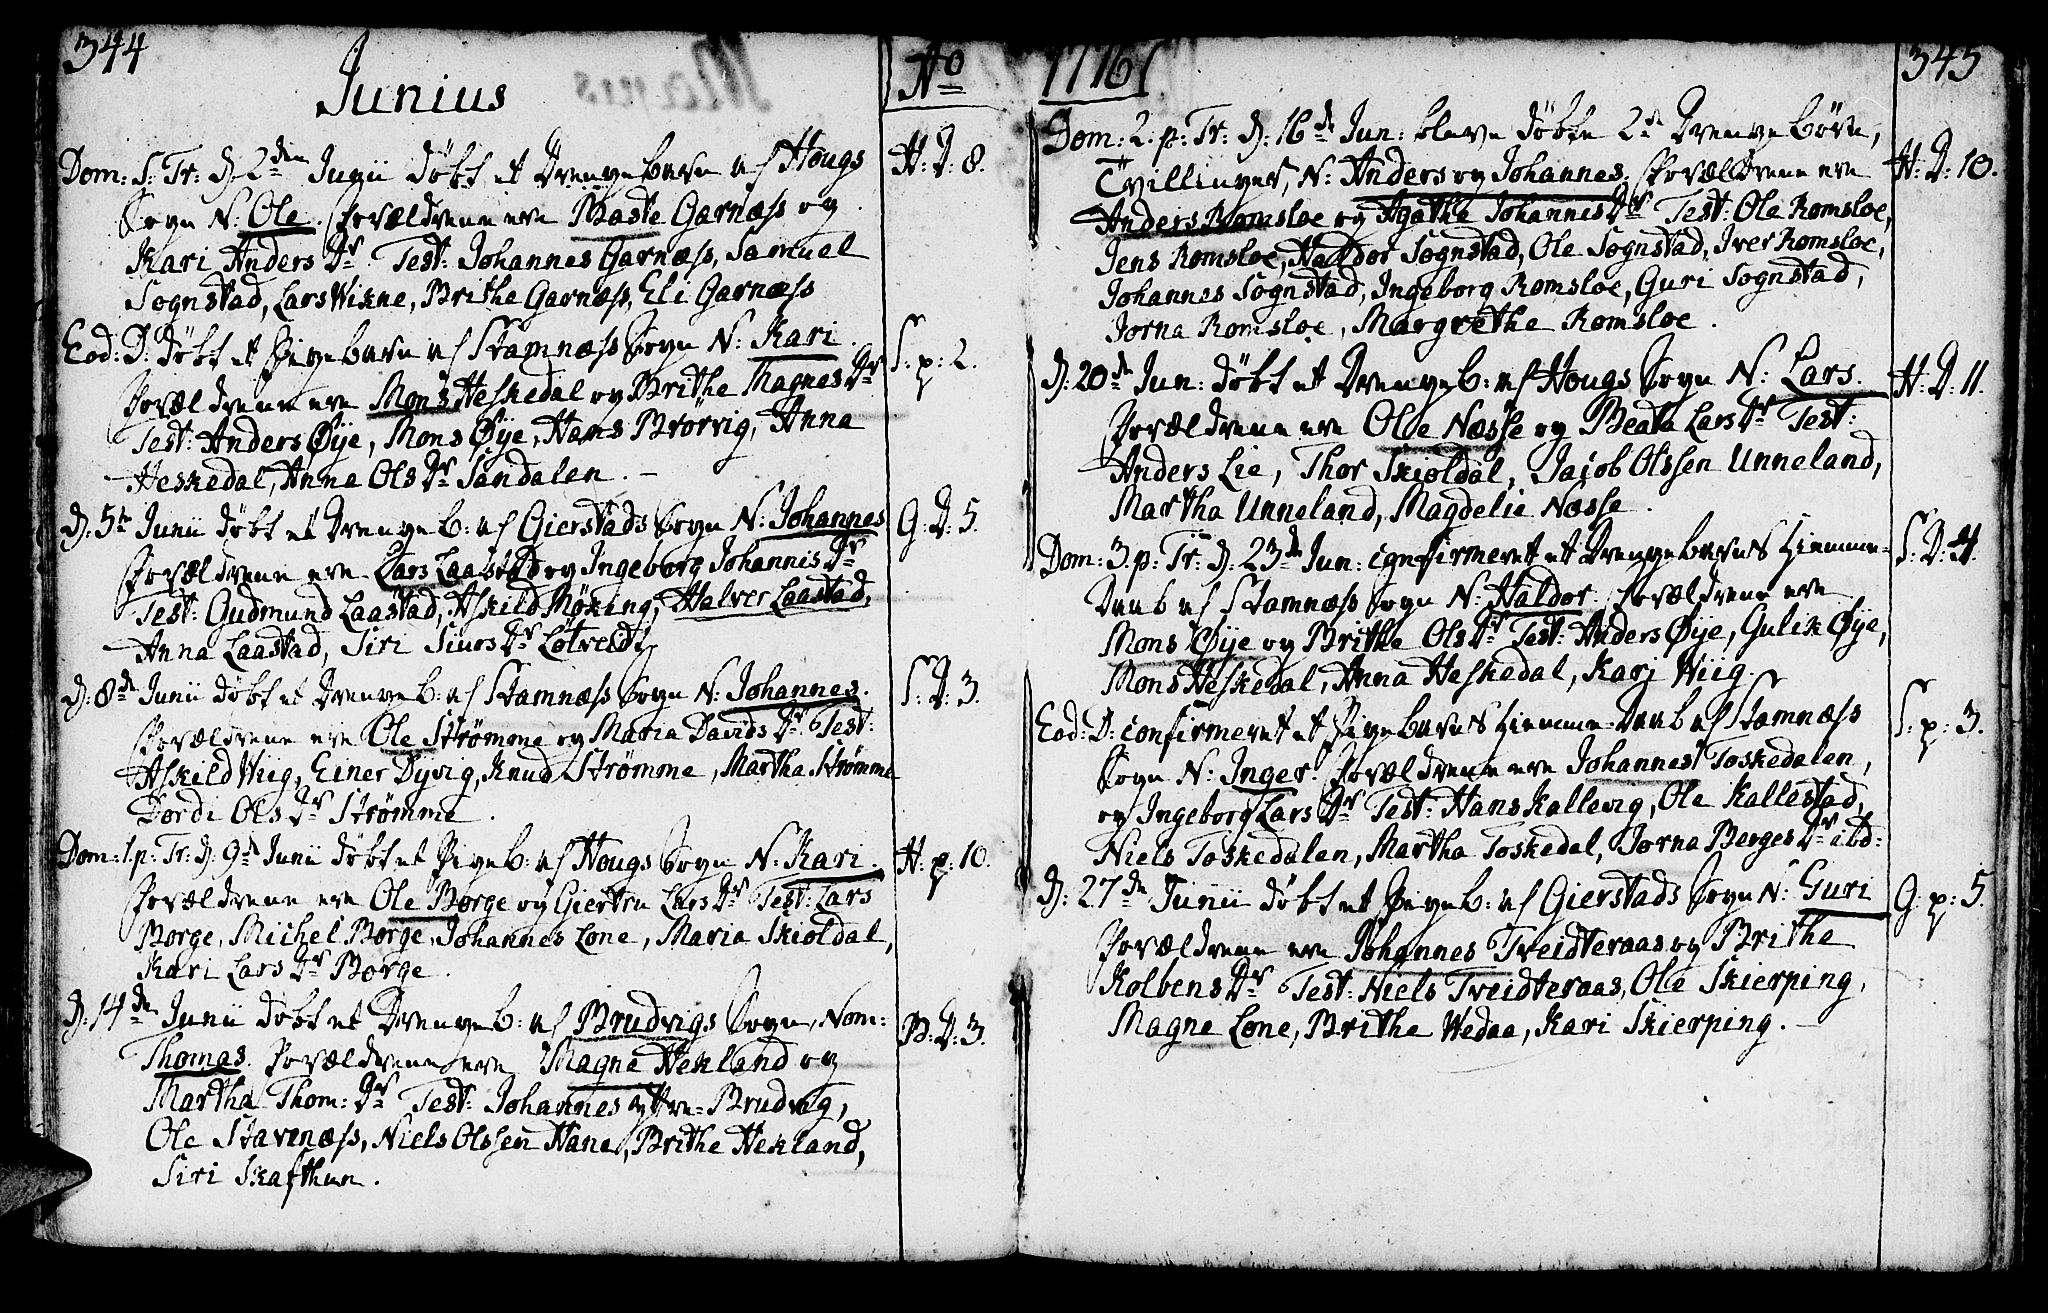 344
Junius
Dom: S: Tr: d. 2den Junii døbt et Drengebarn af Hougs
Sogn N: Ole. Forældrene ere Baste Garnæss og
Kari Anders Dr Test: Johannes Garnæss, Samuel
Sognstad, Lars Wikne, Brithe Garnæss, Eli Garnæss
Eod: D: døbt et Pigebarn af Stamnæss Sogn N: Kari.
Forældrene ere Mons Heskedal og Brithe Magnes Dr
Test: Anders Øye, Mons Øye, Hans Brørvig, Anna
Heskedal, Anna Ols Dr Sandalen.
d: 5te Junii døbt et Drengeb: af Gierstads Sogn N: Johannes
Forældrene ere Lars Laastad og Ingeborg Johannis Dr
Test: Gudmund Laastad, Askild Møking, Halver Laastad,
Anna Laastad, Siri Siurs Dr Løtveidt
d: 8de Junii døbt et Drengeb: af Stamnæss Sogn N: Johannes.
Forældrene ere Ole Strømme og Maria Davids Dr. Test:
Askild Wiig, Einer Dyvig, Knud Strømme, Martha Strømme
Dordi Ols Dr Strømme.
Dom: 1 p: Tr: d. 9de Junii døbt et Pigeb: af Hougs Sogn N: Kari.
Forældrene ere Ole Borge og Giertru Lars Dr Test: Lars
Borge, Michel Borge, Johannes Lone, Maria Skioldal,
Kari Lars Dr Borge.
d. 14de Junii døbt et Drengeb: af Brudvigs Sogn, Nom:
Thomas. Forældrene ere Magne Hekland og
Martha Thom: Dr Test: Johannes yttre-Brudvig,
Ole Stavenæss, Niels Olssen Hane, Brithe Hekland,
Siri Skafthun.
No
H: D: 8.
S: p: 2.
G: D: 5.
S: D: 3.
H: p: 10.
B: D: 3.
1776
345
Dom: 2. p: Tr: d: 16de Jun: bleve døbte 2de Drengebørn,
Tvillinger, N: Anders og Johannes. Forældrene ere
Anders Romsloe og Agathe Johannis Dr Test: Ole Romsloe,
Jens Romsloe, Haldor Sognstad, Ole Sognstad, Iver Romsloe,
Johannes Sognstad, Ingeborg Romsloe, Guri Sognstad,
Jorna Romsloe, Margrethe Romsloe.
d: 20de Jun: døbt et Drengeb: af Hougs Sogn N: Lars.
Forældrene ere Ole Næsse og Beata Lars Dr Test:
Anders Lie, Thor Skioldal, Jacob Olssen Unneland,
Martha Unneland, Magdelie Næsse.
Dom: 3. p: Tr: d. 23de Jun: confirmeret et Drengebarns Hiemme-
Daab af Stamnæss Sogn N: Haldor. Forældrene ere
Mons Øye og Brithe Ols Dr Test: Anders Øye, Gulik Øye,
Mons Heskedal, Anna Heskedal, Kari Wiig.
Eod: D: confirmeret et Pigebarns Hiemme-Daab af Stamnæss
Sogn N: Inger. Forældrene ere Johannes Toskedalen,
og Ingeborg Lars Dr Test: Hans Kallevig, Ole Kallestad,
Niels Toskedalen, Martha Toskedal, Jorna Berges Dr ibd:
d: 27de Junii døbt et Pigeb: af Gierstads Sogn N: Guri
Forældrene ere Johannes Treidteraas og Brithe
Kolbens Dr Test: Niels Treidteraas, Ole Skierping,
Magne Lone, Brithe Wedaa, Kari Skierping.
H: D: 10.
H: D: 11.
S: D: 4.
S: p: 3.
G: p: 5.